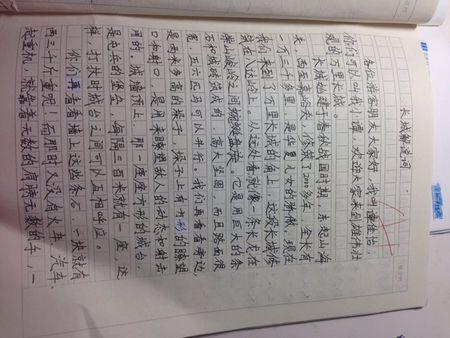 长城解说词
各位游客朋友大家好,我叫
你们可以叫我小谭,欢迎大家来到雄伟壮
观的万里长城。
长城始建于春秋战国时期,东起山海
关,西至嘉峪关,修筑了2000多年,全长有
一万三千多里,是华夏儿女的骄傲,现在
我们来到了万里长城的脚上,这段长城修
筑在八达岭上。从远处看就像一条长龙在
崇山峻岭之间蜿蜒盘旋。它是用巨大的条
石和城砖筑成的,高大坚固,而且路面很
宽,五六匹马可以并行。我们再看看旁边,
是两米多高的垛子,垛子上有方形的瞭望
口和射口,是用来瞭望敌人的动态和射击
用的。城墙顶上,那一座座方形的城台,
是屯兵的堡垒,每隔三百米就有一座,这
样,打仗时城台之间可以互相呼应。
你们再看看墙上这些条石,一块就有
两三千斤重呢!而那时又没有火车、汽车、
起重机,就靠着无数的肩膀无数的手,一